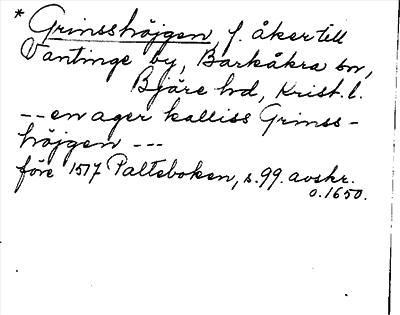 * Grinsshöjgen f. åker till
Vantinge by, Barkåkra sn,
Bjäre hd, Krist. l.
-- en ager kalliss Grinss-
höjgen ---
före 1517 Palteboken, s. 99. avskr.
o. 1650.